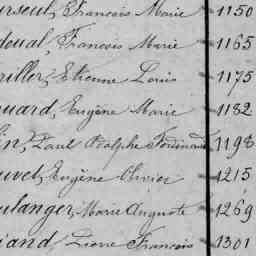 urseul, Francois Marie 1150
doual, Francois Marie 1165
riller, Etienne Louis 1175
ouard, Eugène Marie 1182
lin, Paul Adolphe Ferdinand 1198
uvel, Eugène Olivier 1215
oulanger, Marie Auguste 1269
iand, Pierre Francois 1301